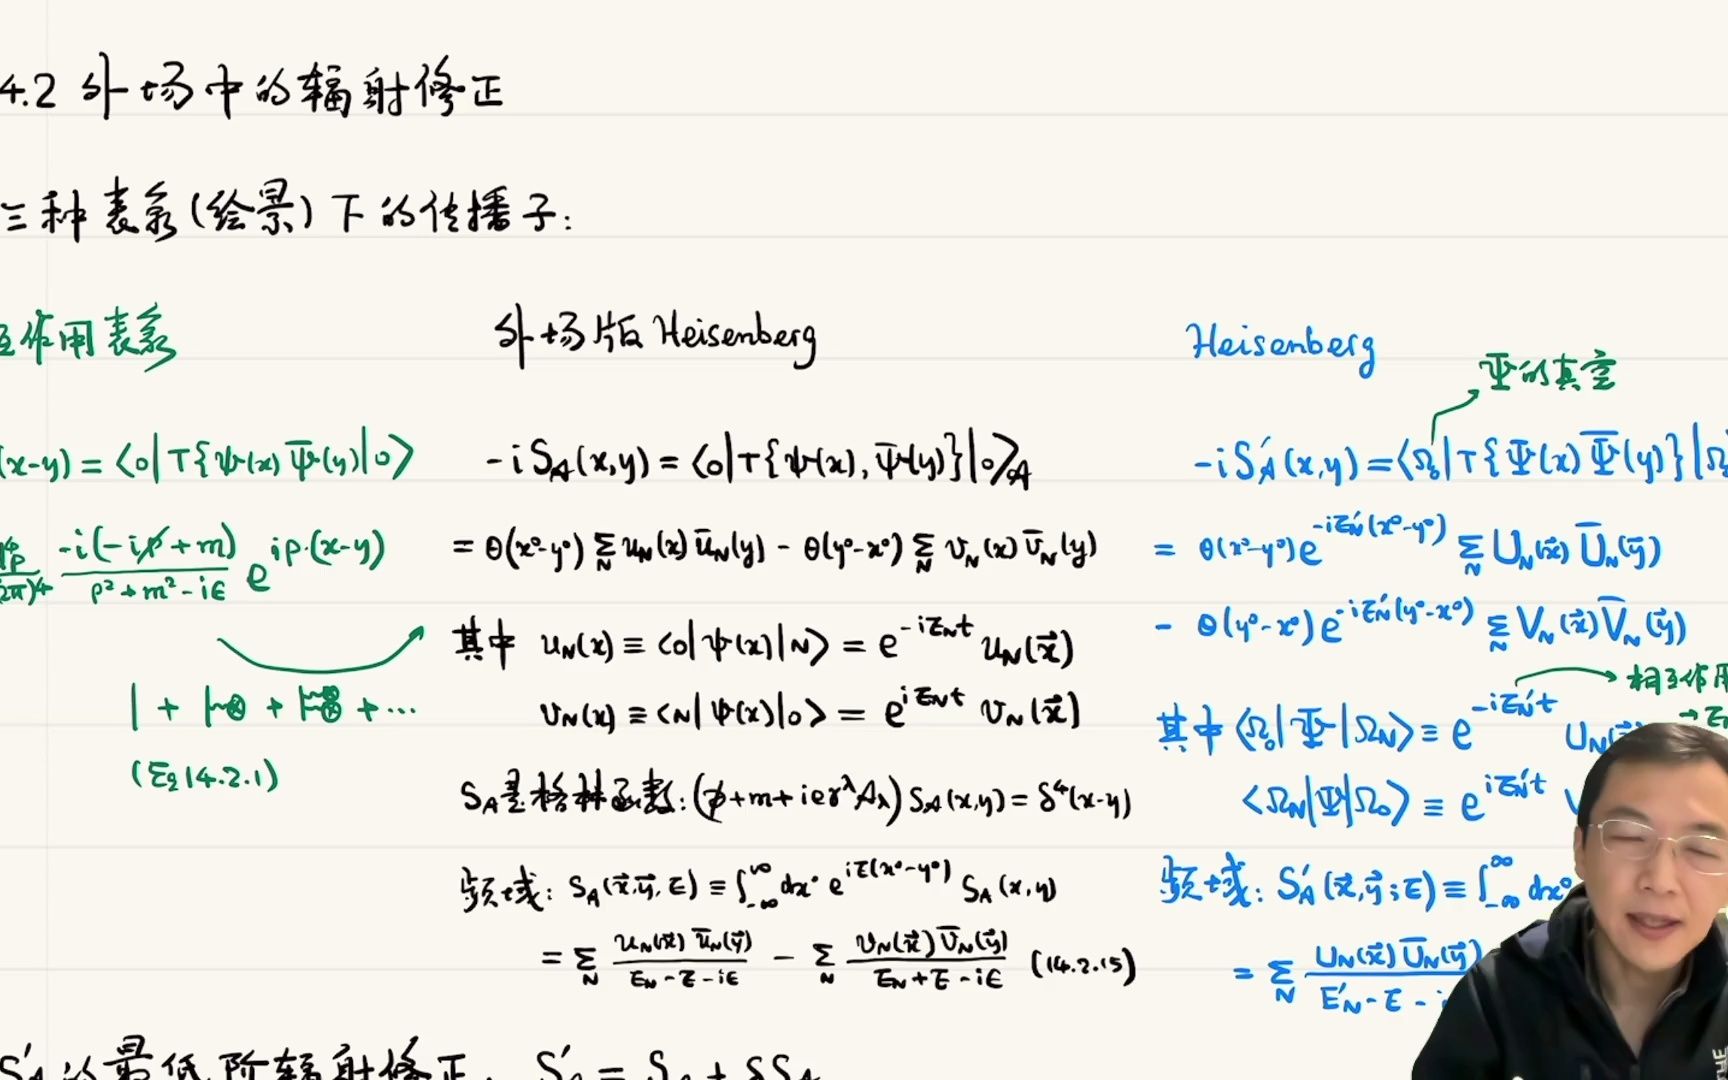 4.2 外场中的辐射修正
三种表象(绘景)下的传播子:
互作用表象
(x-y) = <0|T{ψ(x) ψ̄(y)|0>
-i(-ip̸+m) / p²+m²-iε e^{ip·(x-y)}
| + |~⊗ + |~⊗~⊗ + ...
(Eq 14.2.1)
外场版 Heisenberg
-i S_A(x,y) = <0|T{ψ(x), ψ̄(y)}|0>_A
= θ(x⁰-y⁰) Σ_N u_N(x) ū_N(y) - θ(y⁰-x⁰) Σ_N v_N(x) v̄_N(y)
其中 u_N(x) ≡ <0|ψ(x)|N> = e^{-iE_N t} u_N(x⃗)
v_N(x) ≡ <N|ψ(x)|0> = e^{iE_N t} v_N(x⃗)
S_A是格林函数: (∂̸+m+ieγ^λ A_λ) S_A(x,y) = δ⁴(x-y)
频域: S_A(x⃗,y⃗,E) ≡ ∫_{-∞}^{∞} dx⁰ e^{iE(x⁰-y⁰)} S_A(x,y)
= Σ_N u_N(x⃗) ū_N(y⃗) / E_N-E-iε - Σ_N v_N(x⃗) v̄_N(y⃗) / E_N+E-iε (14.2.15)
Heisenberg
Ψ的真空
-i S'_A(x,y) = <Ω₀|T{Ψ(x) Ψ̄(y)}|Ω
= θ(x⁰-y⁰) e^{-iE'_N(x⁰-y⁰)} Σ_N U_N(x⃗) Ū_N(y⃗)
- θ(y⁰-x⁰) e^{-iE'_N(y⁰-x⁰)} Σ_N V_N(x⃗) V̄_N(y⃗)
相互作用
其中 <Ω₀|Ψ|Ω_N> ≡ e^{-iE'_N t} U_N(
<Ω_N|Ψ|Ω₀> ≡ e^{iE'_N t}
频域: S'_A(x⃗,y⃗;E) ≡ ∫_{-∞}^{∞} dx⁰
= Σ_N U_N(x⃗) Ū_N(y⃗) / E'_N-E-
S'_A 的最低阶辐射修正: S'_A = S_A + δS_A
THE